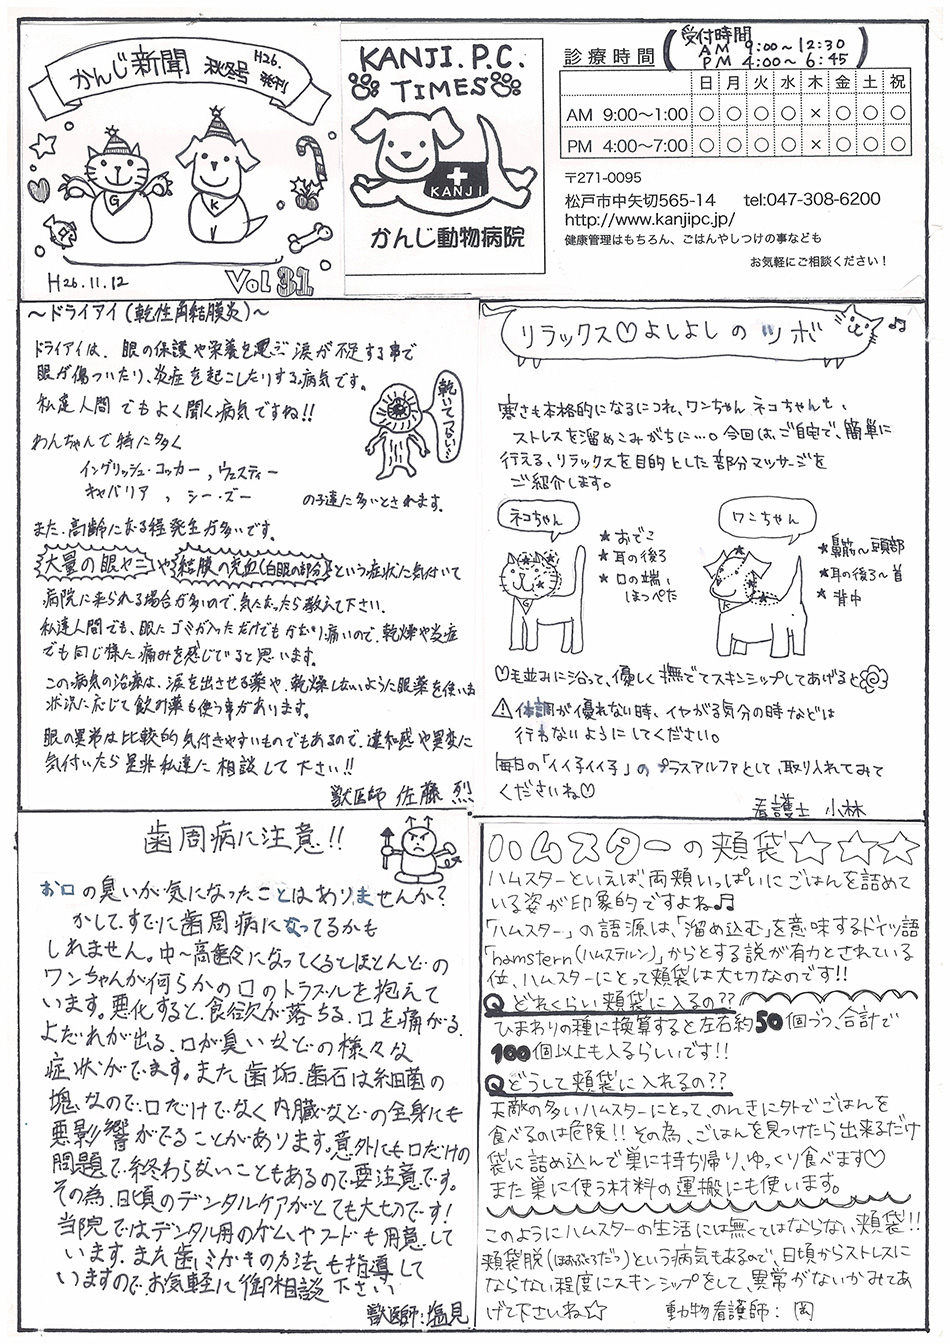 かんじ新聞 秋冬号 H26.発刊
H26.11.12
Vol 31
KANJI.P.C.
TIMES
KANJI
かんじ動物病院
診療時間
受付時間
AM 9:00～12:30
PM 4:00～6:45
日 月 火 水 木 金 土 祝
AM 9:00～1:00 ○ ○ ○ ○ × ○ ○ ○
PM 4:00～7:00 ○ ○ ○ ○ × ○ ○ ○
〒271-0095
松戸市中矢切565-14 tel:047-308-6200
http://www.kanjipc.jp/
健康管理はもちろん、ごはんやしつけの事なども
お気軽にご相談ください！
～ドライアイ(乾性角結膜炎)～
ドライアイは、眼の保護や栄養を運ぶ涙が不足する事で
眼が傷ついたり、炎症を起こしたりする病気です。
私達人間でもよく聞く病気ですね!!
乾いてつらい…
わんちゃんで特に多く
イングリッシュ・コッカー、ウェスティー
キャバリア、シー・ズー
の子達に多いとされます。
また、高齢になる程発生が多いです。
大量の眼ヤニや結膜の充血(白眼の部分)という症状に気付いて
病院に来られる場合が多いので、気になったら教えて下さい。
私達人間でも、眼にゴミが入っただけでもかなり痛いので、乾燥や炎症
でも同じ様に痛みを感じていると思います。
この病気の治療は、涙を出させる薬や、乾燥しないように眼薬を使い、
状況に応じて飲み薬も使う事があります。
眼の異常は比較的気付きやすいものでもあるので、違和感や異変に
気付いたら是非私達に相談して下さい!!
獣医師 佐藤 烈
リラックス♡よしよしのツボ
寒さも本格的になるにつれ、ワンちゃんネコちゃんも、
ストレスを溜めこみがちに…。今回は、ご自宅で、簡単に
行える、リラックスを目的とした部分マッサージを
ご紹介します。
ネコちゃん
★おでこ
★耳の後ろ
★口の端、
ほっぺた
ワンちゃん
★鼻筋～頭部
★耳の後ろ～首
★背中
♡毛並みに沿って、優しく撫でてスキンシップしてあげると
⚠体調が優れない時、イヤがる気分の時などは
行わないようにしてください。
毎日の「イイ子イイ子」のプラスアルファとして、取り入れてみて
くださいね♡
看護士 小林
歯周病に注意!!
お口の臭いが気になったことはありませんか?
かして、すでに歯周病になってるかも
しれません。中～高齢になってくるとほとんどの
ワンちゃんが何らかの口のトラブルを抱えて
います。悪化すると、食欲が落ちる、口を痛がる、
よだれが出る、口が臭いなどの様々な
症状がでます。また歯垢、歯石は細菌の
塊なので、口だけでなく内臓などの全身にも
悪影響がでることがあります。意外にも口だけの
問題で終わらないこともあるので要注意です。
その為、日頃のデンタルケアがとても大切です!
当院ではデンタル用のガムやフードも用意して
います。また歯ミガキの方法も指導して
いますので、お気軽に御相談下さい
獣医師:塩見
ハムスターの頬袋☆☆☆
ハムスターといえば、両頬いっぱいにごはんを詰めて
いる姿が印象的ですよね♫
「ハムスター」の語源は、「溜め込む」を意味するドイツ語
「hamstern(ハムステルン)」からとする説が有力とされている
位、ハムスターにとって頬袋は大切なのです!!
Q どれくらい頬袋に入るの??
ひまわりの種に換算すると左右約50個づつ、合計で
100個以上も入るらしいです!!
Qどうして頬袋に入れるの??
天敵の多いハムスターにとって、のんきに外でごはんを
食べるのは危険!! その為、ごはんを見つけたら出来るだけ
袋に詰め込んで巣に持ち帰り、ゆっくり食べます♡
また巣に使う材料の運搬にも使います。
このようにハムスターの生活には無くてはならない頬袋!!
頬袋脱(ほおぶくろだつ)という病気もあるので、日頃からストレスに
ならない程度にスキンシップをして、異常がないかみてあ
げて下さいね☆ 動物看護師:岡